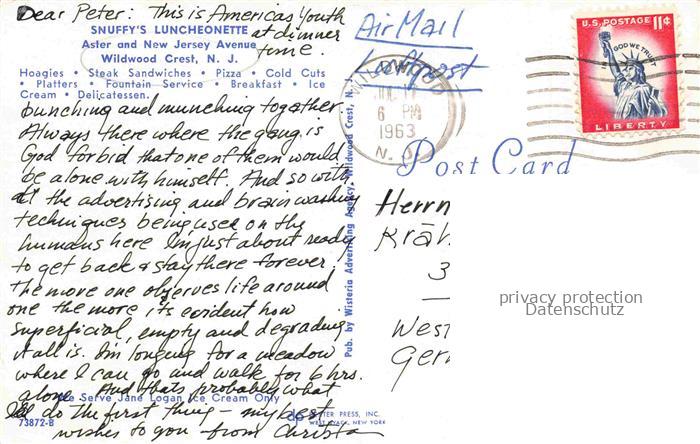 Dear Peter: This is Americas Youth
SNUFFY'S LUNCHEONETTE
at dinner
Aster and New Jersey Avenue
time.
Wildwood Crest, N. J.
Hoagies • Steak Sandwiches • Pizza • Cold Cuts
• Platters • Fountain Service • Breakfast • Ice
Cream • Delicatessen.
bunching and munching together
Always there where the gang is
God forbid that one of them would
be alone with himself. And so with
all the advertising and brain washing
techniques being used on the
humans here Im just about ready
to get back & stay there forever.
The more one observes life around
one the more its evident how
superficial, empty and degrading
it all is. Im longing for a meadow
where I can go and walk for 6 hrs.
alone. And thats probably what
We Serve Jane Logan Ice Cream Only
I'll do the first thing — my best
73872-B
wishes to you — from Christa
DEXTER PRESS, INC.
WEST NYACK, NEW YORK
Pub. by Wisteria Advertising Agency, Wildwood Crest, N. J.
Air Mail
WILDWOOD
6 PM
1963
N. J.
U.S. POSTAGE 11¢
IN GOD WE TRUST
LIBERTY
Post Card
Herrn
Kräh
3
West
Ger
privacy protection
Datenschutz